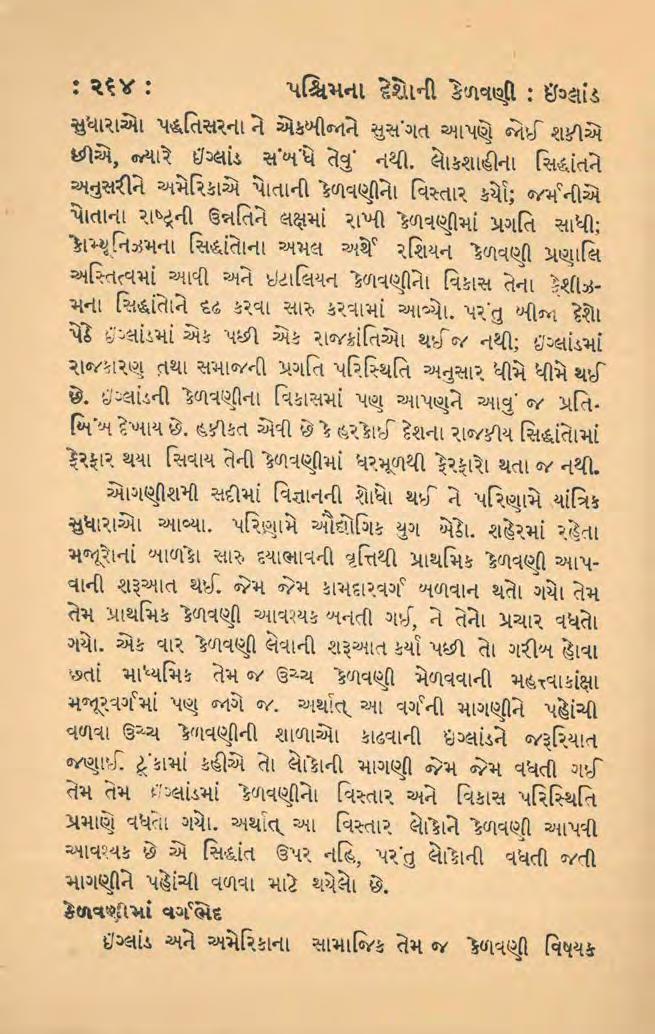 : ૨૬૪ : પશ્ચિમના દેશોની કેળવણી : ઇંગ્લાંડ
સુધારાઓ પદ્ધતિસરના ને એકબીજાને સુસંગત આપણે જોઈ શકીએ
છીએ, જ્યારે ઇંગ્લાંડ સંબંધે તેવું નથી. લોકશાહીના સિદ્ધાંતને
અનુસરીને અમેરિકાએ પોતાની કેળવણીનો વિસ્તાર કર્યો; જર્મનીએ
પોતાના રાષ્ટ્રની ઉન્નતિને લક્ષમાં રાખી કેળવણીમાં પ્રગતિ સાધી;
કોમ્યૂનિઝમના સિદ્ધાંતોના અમલ અર્થે રશિયન કેળવણી પ્રણાલિ
અસ્તિત્વમાં આવી અને ઇટાલિયન કેળવણીનો વિકાસ તેના ફેશીઝ-
મના સિદ્ધાંતોને દૃઢ કરવા સારુ કરવામાં આવ્યો. પરંતુ બીજા દેશો
પેઠે ઇંગ્લાંડમાં એક પછી એક રાજક્રાંતિઓ થઈ જ નથી; ઇંગ્લાંડમાં
રાજકારણ તથા સમાજની પ્રગતિ પરિસ્થિતિ અનુસાર ધીમે ધીમે થઈ
છે. ઇંગ્લાંડની કેળવણીના વિકાસમાં પણ આપણને આવું જ પ્રતિ-
બિંબ દેખાય છે. હકીકત એવી છે કે હરકોઈ દેશના રાજકીય સિદ્ધાંતોમાં
ફેરફાર થયા સિવાય તેની કેળવણીમાં ધરમૂળથી ફેરફારો થતા જ નથી.
ઓગણીશમી સદીમાં વિજ્ઞાનની શોધો થઈ ને પરિણામે યાંત્રિક
સુધારાઓ આવ્યા. પરિણામે ઔદ્યોગિક યુગ બેઠો. શહેરમાં રહેતા
મજૂરોનાં બાળકો સારુ દયાભાવની વૃત્તિથી પ્રાથમિક કેળવણી આપ-
વાની શરૂઆત થઈ. જેમ જેમ કામદારવર્ગ બળવાન થતો ગયો તેમ
તેમ પ્રાથમિક કેળવણી આવશ્યક બનતી ગઈ, ને તેનો પ્રચાર વધતો
ગયો. એક વાર કેળવણી લેવાની શરૂઆત કર્યા પછી તો ગરીબ હોવા
છતાં માધ્યમિક તેમ જ ઉચ્ચ કેળવણી મેળવવાની મહત્ત્વાકાંક્ષા
મજૂરવર્ગમાં પણ જાગે જ. અર્થાત્ આ વર્ગની માગણીને પહોંચી
વળવા ઉચ્ચ કેળવણીની શાળાઓ કાઢવાની ઇંગ્લાંડને જરૂરિયાત
જણાઈ. ટૂંકામાં કહીએ તો લોકોની માગણી જેમ જેમ વધતી ગઈ
તેમ તેમ ઇંગ્લાંડમાં કેળવણીનો વિસ્તાર અને વિકાસ પરિસ્થિતિ
પ્રમાણે વધતો ગયો. અર્થાત્ આ વિસ્તાર લોકોને કેળવણી આપવી
આવશ્યક છે એ સિદ્ધાંત ઉપર નહિ, પરંતુ લોકોની વધતી જતી
માગણીને પહોંચી વળવા માટે થયેલો છે.
કેળવણીમાં વર્ગભેદ
ઇંગ્લાંડ અને અમેરિકાના સામાજિક તેમ જ કેળવણી વિષયક